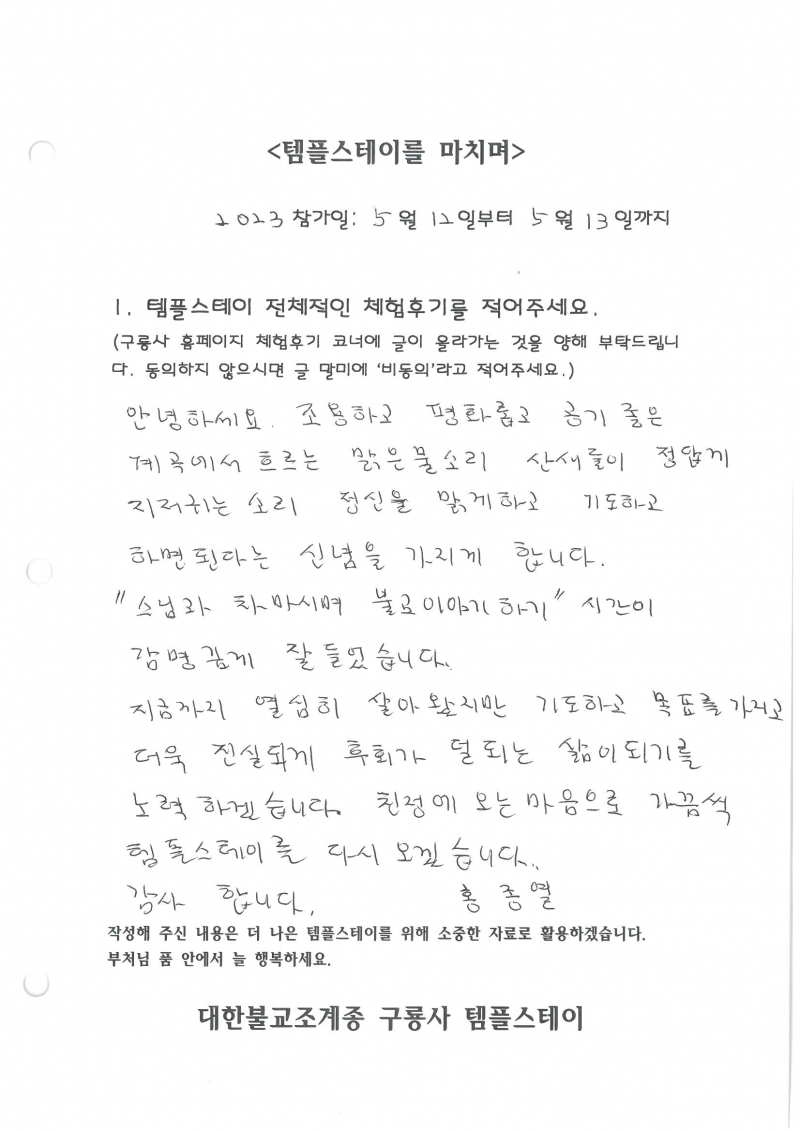 <템플스테이를 마치며>
2023 참가일: 5월 12일부터 5월 13일까지
1. 템플스테이 전체적인 체험후기를 적어주세요.
(구룡사 홈페이지 체험후기 코너에 글이 올라가는 것을 양해 부탁드립니
다. 동의하지 않으시면 글 말미에 '비동의'라고 적어주세요.)
안녕하세요. 조용하고 평화롭고 공기 좋은
계곡에서 흐르는 맑은물소리 산새들이 정답게
지저귀는 소리 정신을 맑게하고 기도하고
하면된다는 신념을 가지게 합니다.
"스님과 차마시며 불교이야기하기" 시간이
감명깊게 잘 들었습니다.
지금까지 열심히 살아왔지만 기도하고 목표를 가지고
더욱 진실되게 후회가 덜되는 삶이되기를
노력 하겠습니다. 친정에 오는 마음으로 가끔씩
템플스테이를 다시 오겠습니다.
감사 합니다. 홍종열
작성해 주신 내용은 더 나은 템플스테이를 위해 소중한 자료로 활용하겠습니다.
부처님 품 안에서 늘 행복하세요.
대한불교조계종 구룡사 템플스테이